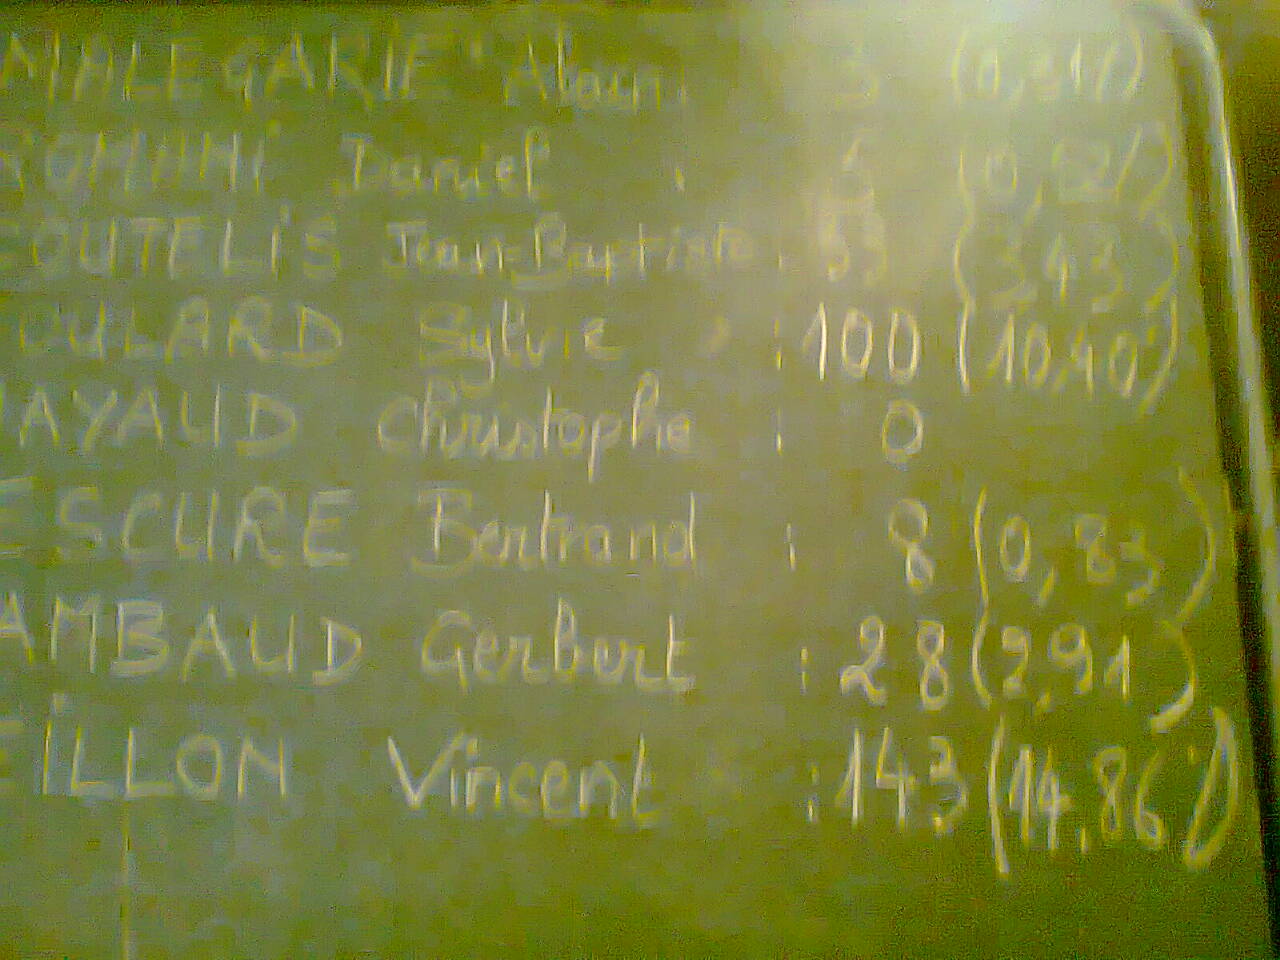 MALEGARIE Alain : 3
Daniel :
OUTELIS Jean-Baptiste : 33 (3,43)
OULARD Sylvie : 100 (10,40)
AYAUD Christophe : 0
ESCURE Bertrand : 8 (0,83)
AMBAUD Gerbert : 28 (2,91)
EILLON Vincent : 143 (14,86)